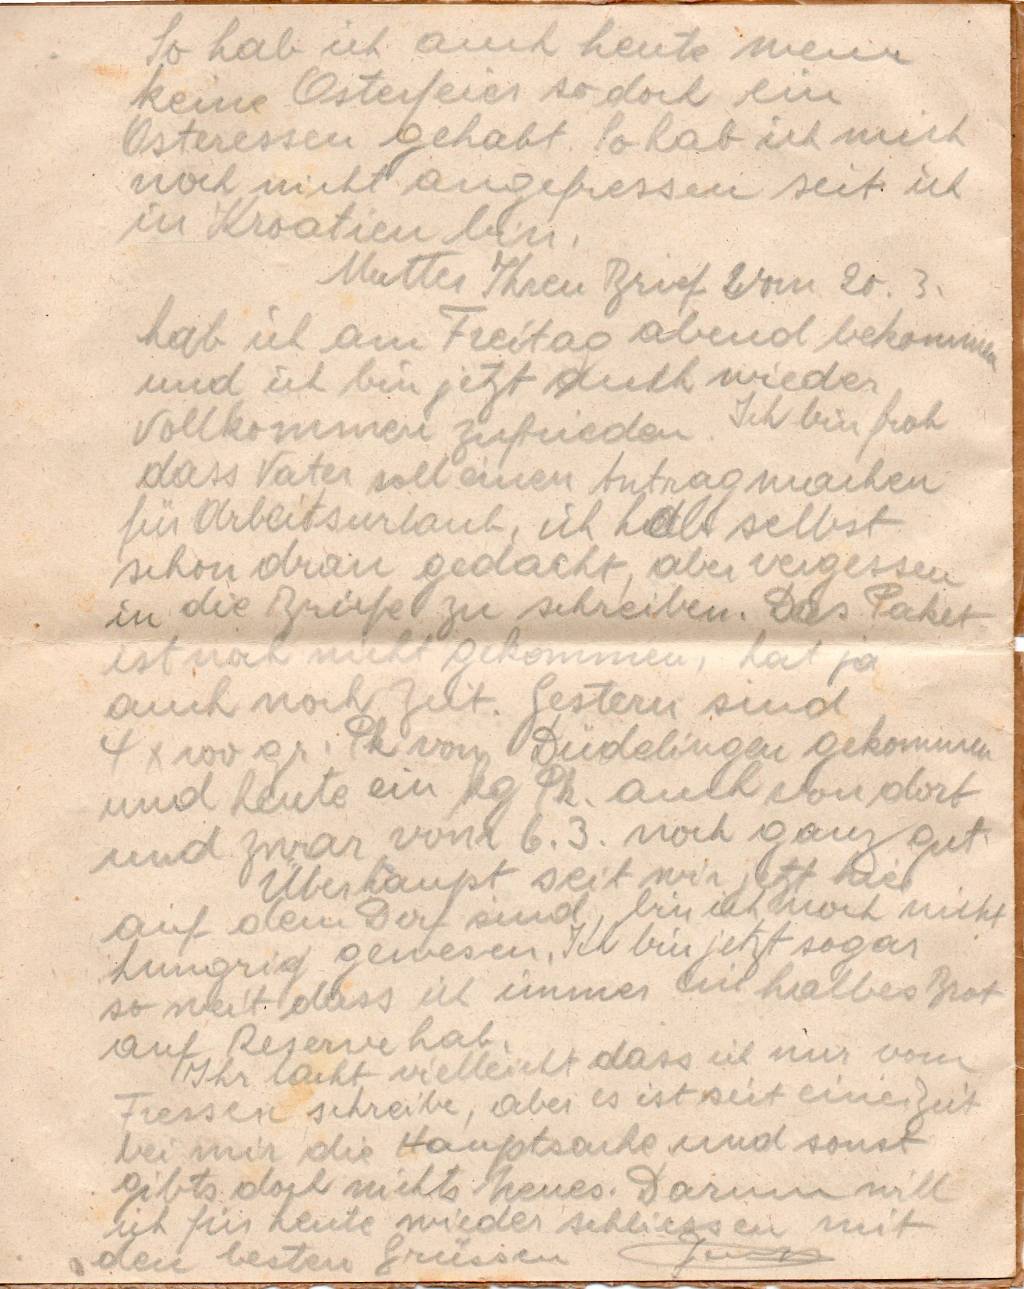 So hab ich auch heute wenn
keine Osterfeier so doch ein
Osteressen gehabt. So hab ich mich
noch nicht angefressen seit ich
in Kroatien bin.
Mutter Ihren Brief vom 20. 3.
hab ich am Freitag abend bekommen
und ich bin jetzt auch wieder
vollkommen zufrieden. Ich bin froh
dass Vater soll einen Antrag machen
für Arbeitsurlaub, ich hab selbst
schon dran gedacht, aber vergessen
in die Briefe zu schreiben. Das Paket
ist noch nicht gekommen, hat ja
auch noch Zeit. Gestern sind
4 x 100 gr. Pk von Düdelingen gekommen
und heute ein kg Pk. auch von dort
und zwar vom 6. 3. noch ganz gut.
Überhaupt seit wir jetzt hier
auf dem Dorf sind, bin ich noch nicht
hungrig gewesen. Ich bin jetzt sogar
so weit dass ich immer ein halbes Brot
auf Reserve hab.
Ihr lacht vielleicht dass ich nur vom
Fressen schreibe, aber es ist seit einer Zeit
bei mir die Hauptsache und sonst
gibts doch nichts neues. Darum will
ich für heute wieder schliessen mit
den besten Grüssen